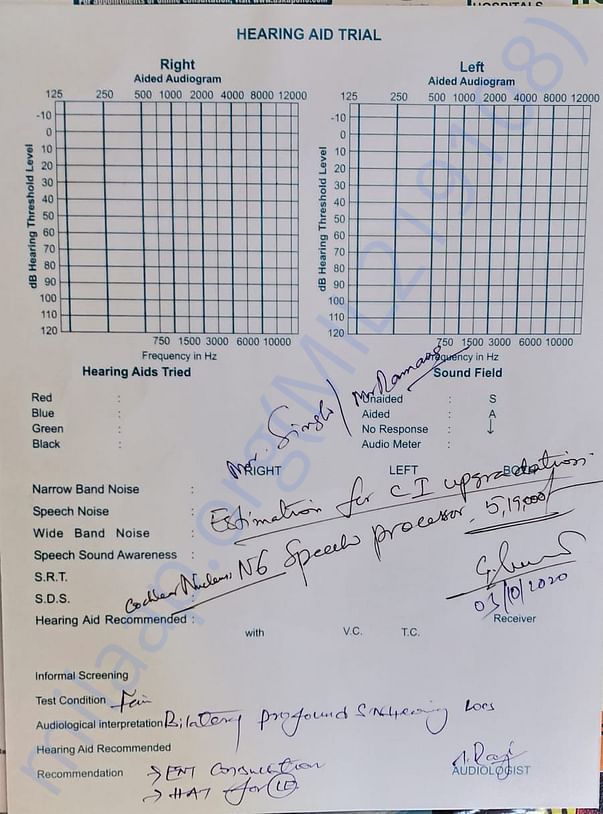 HOSPITALS
HEARING AID TRIAL
Right
Aided Audiogram
125 250 500 1000 2000 4000 8000 12000
-10
0
10
20
30
40
50
60
70
80
90
100
110
120
dB Hearing Threshold Level
750 1500 3000 6000 10000
Frequency in Hz
Left
Aided Audiogram
125 250 500 1000 2000 4000 8000 12000
-10
0
10
20
30
40
50
60
70
80
90
100
110
120
dB Hearing Threshold Level
750 1500 3000 6000 10000
Frequency in Hz
Hearing Aids Tried
Red :
Blue :
Green :
Black :
Sound Field
Unaided : S
Aided : A
No Response : ↓
Audio Meter :
Mr. Singh /
RIGHT LEFT BOTH
Narrow Band Noise :
Speech Noise :
Wide Band Noise :
Speech Sound Awareness :
S.R.T.
S.D.S.
Estimation for CI upgradation
Cochlear Nucleus N6 Speech processor. 5,19,000/
03/10/2020
Hearing Aid Recommended :
Receiver
with V.C. T.C.
Informal Screening
Test Condition Fair
Audiological interpretation Bilateral profound SN Hearing Loss
Hearing Aid Recommended
Recommendation → ENT Consultation
→ HAT for LE
AUDIOLOGIST
milaap.org(MIL219168)